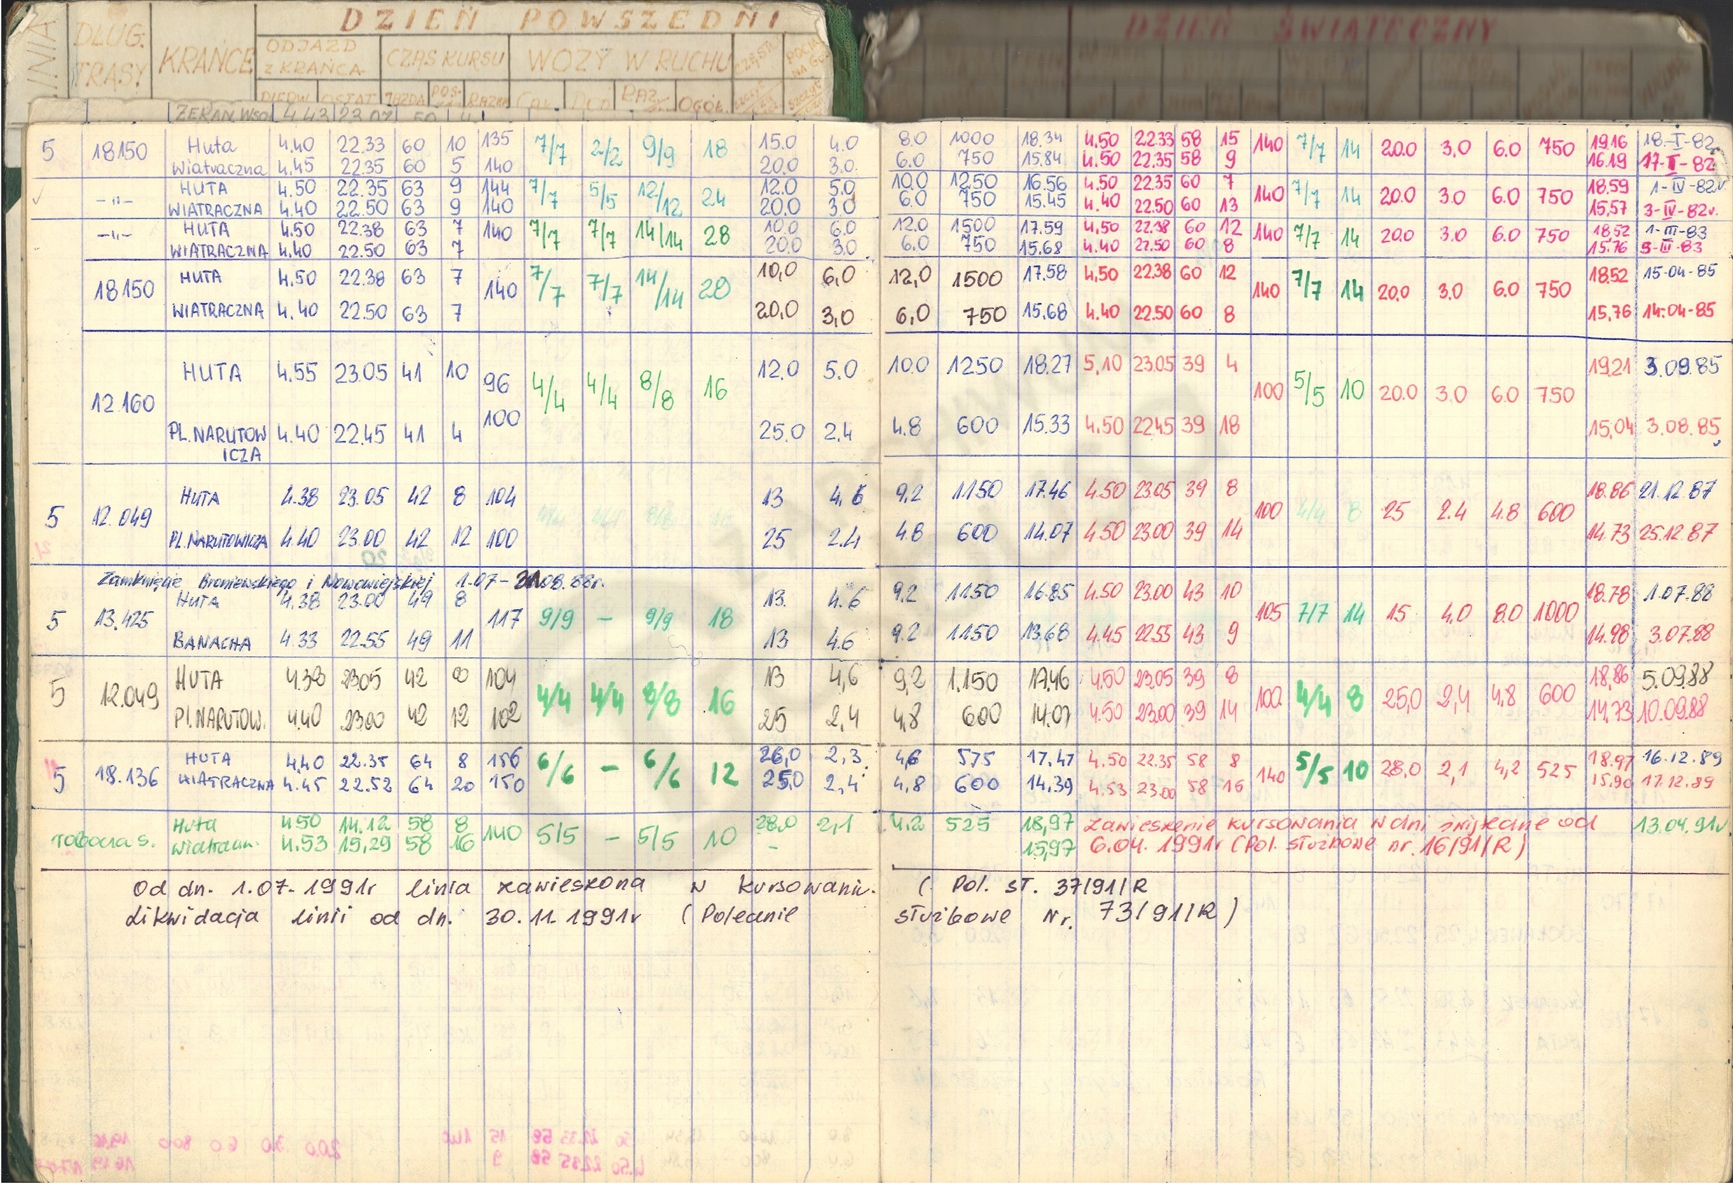 DZIEŃ POWSZEDNI DZIEŃ ŚWIĄTECZNY
LINIA DŁUG. TRASY KRAŃCE ODJAZD Z KRAŃCA CZAS KURSU WOZY W RUCHU
PIERW. OSTAT. JAZDA POS- RAZEM RAZ. OGÓŁ.
ŻERAŃ WSCH. 4.43 23.07 50 4
5 18150 Huta 4.40 22.33 60 10 135 7/7 2/2 9/9 18 15.0 4.0 8.0 1000 18.34 4.50 22.33 58 15 140 7/7 14 20.0 3,0 6.0 750 19.16 18-I-82
Wiatraczna 4.45 22.35 60 5 140 20.0 3.0 6.0 750 15.84 4.50 22.35 58 9 16.19 17-I-82
-"- HUTA 4.50 22.35 63 9 144 7/7 5/5 12/12 24 12.0 5.0 10.0 1250 16.56 4.50 22.35 60 7 140 7/7 14 20.0 3.0 6.0 750 18.59 1-IV-82r.
WIATRACZNA 4.40 22.50 63 9 140 20.0 3.0 6.0 750 15.45 4.40 22.50 60 13 15,57 3-IV-82r.
-"- HUTA 4.50 22.38 63 7 140 7/7 7/7 14/14 28 10.0 6.0 12.0 1500 17.59 4,50 22.38 60 12 140 7/7 14 20.0 3.0 6.0 750 18.52 1-III-83
WIATRACZNA 4.40 22.50 63 7 20.0 3.0 6.0 750 15.68 4.40 22.50 60 8 15.76 5-III-83
18150 HUTA 4,50 22.38 63 7 140 7/7 7/7 14/14 28 10,0 6,0 12,0 1500 17.58 4,50 22.38 60 12 140 7/7 14 20.0 3.0 6.0 750 18.52 15-04-85
WIATRACZNA 4.40 22.50 63 7 20,0 3,0 6,0 750 15,68 4.40 22.50 60 8 15,76 14-04-85
12.160 HUTA 4.55 23.05 41 10 96 4/4 4/4 8/8 16 12.0 5.0 10.0 1250 18.27 5,10 23.05 39 4 100 5/5 10 20.0 3.0 6.0 750 19.21 3.09.85
PL.NARUTOW 4.40 22.45 41 4 100 25.0 2,4 4.8 600 15.33 4.50 22.45 39 18 15,04 3.08.85
ICZA
5 12.049 HUTA 4.38 23.05 42 8 104 4/4 4/4 8/8 16 13 4,6 9,2 1150 17.46 4.50 23.05 39 8 100 4/4 8 25 2.4 4.8 600 18.86 21.12.87
PL.NARUTOWICZA 4.40 23.00 42 12 100 25 2.4 4.8 600 14.07 4.50 23.00 39 14 14.73 25.12.87
Zamknięcie Broniewskiego i Nowowiejskiej 1.07-31.08.88r.
5 13.425 HUTA 4.38 23.00 49 8 117 9/9 – 9/9 18 13. 4.6 9.2 1150 16.85 4.50 23.00 43 10 105 7/7 14 15 4.0 8.0 1000 18.78 1.07.88
BANACHA 4.33 22.55 49 11 13 4.6 9.2 1150 13.68 4.45 22.55 43 9 14.98 3.07.88
5 12.049 HUTA 4.38 23.05 42 8 104 4/4 4/4 8/8 16 13 4,6 9,2 1.150 17,46 4.50 23.05 39 8 100 4/4 8 25,0 2,4 4,8 600 18,86 5.09.88
Pl.NARUTOW. 4.40 23.00 42 12 102 25 2,4 4,8 600 14.07 4.50 23.00 39 14 14,73 10.09.88
5 18.136 HUTA 4.40 22.35 64 8 156 6/6 – 6/6 12 26,0 2,3 4,6 575 17,47 4.50 22.35 58 8 140 5/5 10 28,0 2,1 4,2 525 18,97 16.12.89
WIATRACZNA 4.45 22.52 64 20 150 25,0 2,4 4,8 600 14,39 4.53 23.00 58 16 15,90 17.12.89
robocza s. Huta 4.50 14.12 58 8 140 5/5 – 5/5 10 28,0 2,1 4.2 525 18,97 Zawieszenie kursowania w dni świąteczne od 13.04.91r.
Wiatracz. 4.53 15,29 58 16 – 15,97 6.04. 1991r (Pol. służbowe nr. 16/91/R)
Od dn. 1.07-1991r linia zawieszona w kursowaniu. ( Pol. sł. 37/91/R
Likwidacja linii od dn. 30.11.1991r (Polecenie służbowe Nr. 73/91/R)